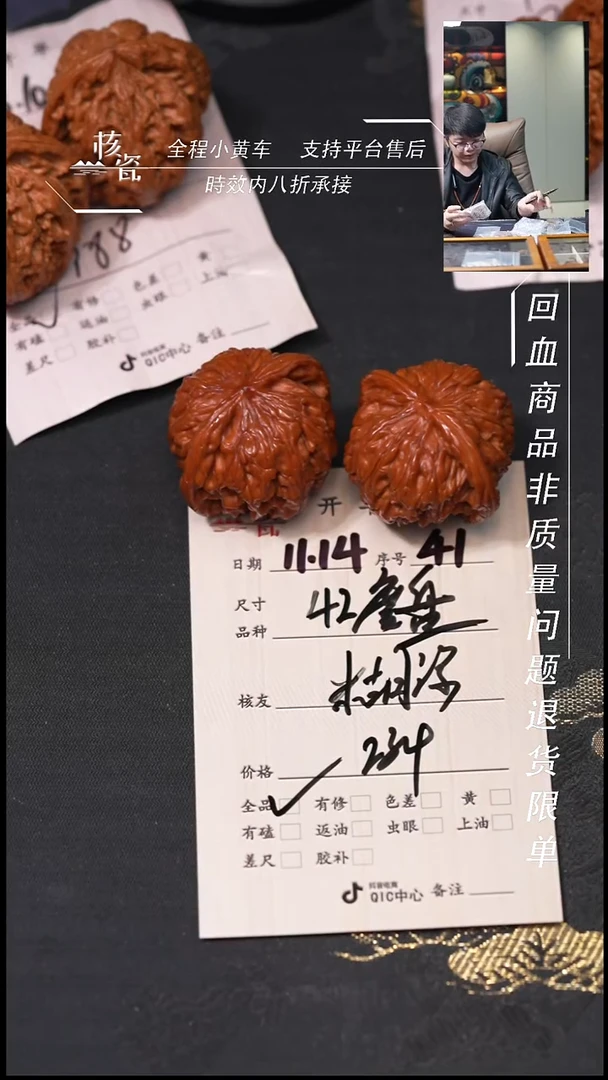 核瓷
全程小黄车 支持平台售后
時效内八折承接
回血商品非质量问题退货限单
188
全品 有修 色差 黄
有磕 返油 虫眼 上油
差尺 胶补
QIC中心 备注
开
日期 11.14 序号 41
尺寸 42磨盘
品种
核友 糊涂
价格 234
全品 有修 色差 黄
有磕 返油 虫眼 上油
差尺 胶补
抖音电商
QIC中心 备注